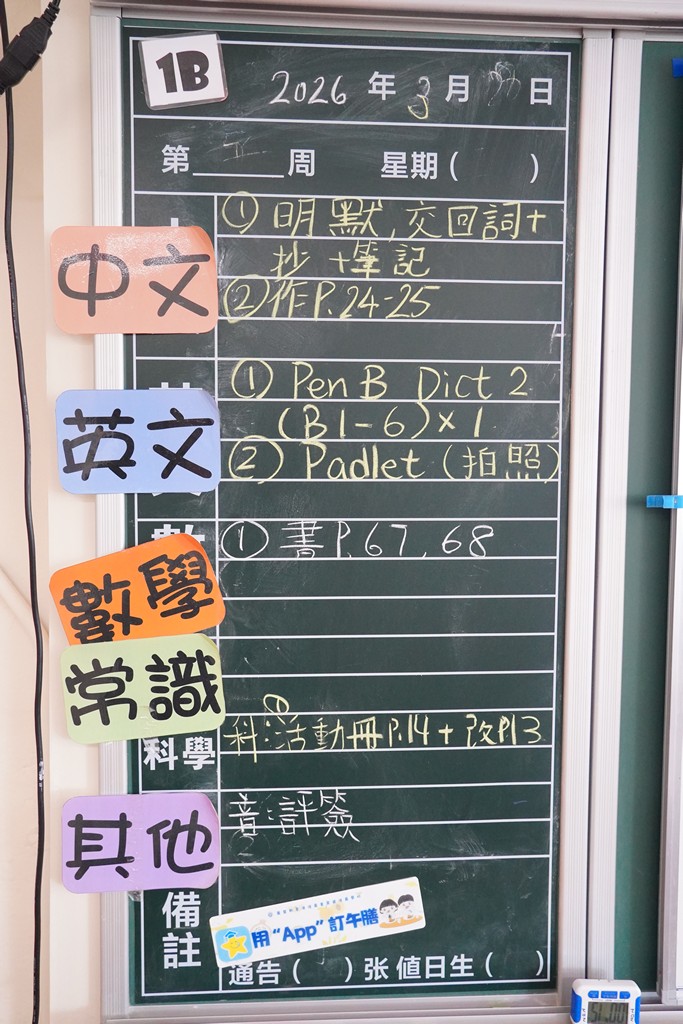 1B
2026 年 3 月 日
第 周 星期( )
中文
① 明默,交回詞+
抄+筆記
② 作P.24-25
英文
① Pen B Dict 2
(B1-6)×1
② Padlet (拍照)
數學
① 書P.67,68
常識
科學
科:①活動冊P.14+改P.13
其他
音:評簽
備註
用“App”訂午膳
通告( )张 值日生( )